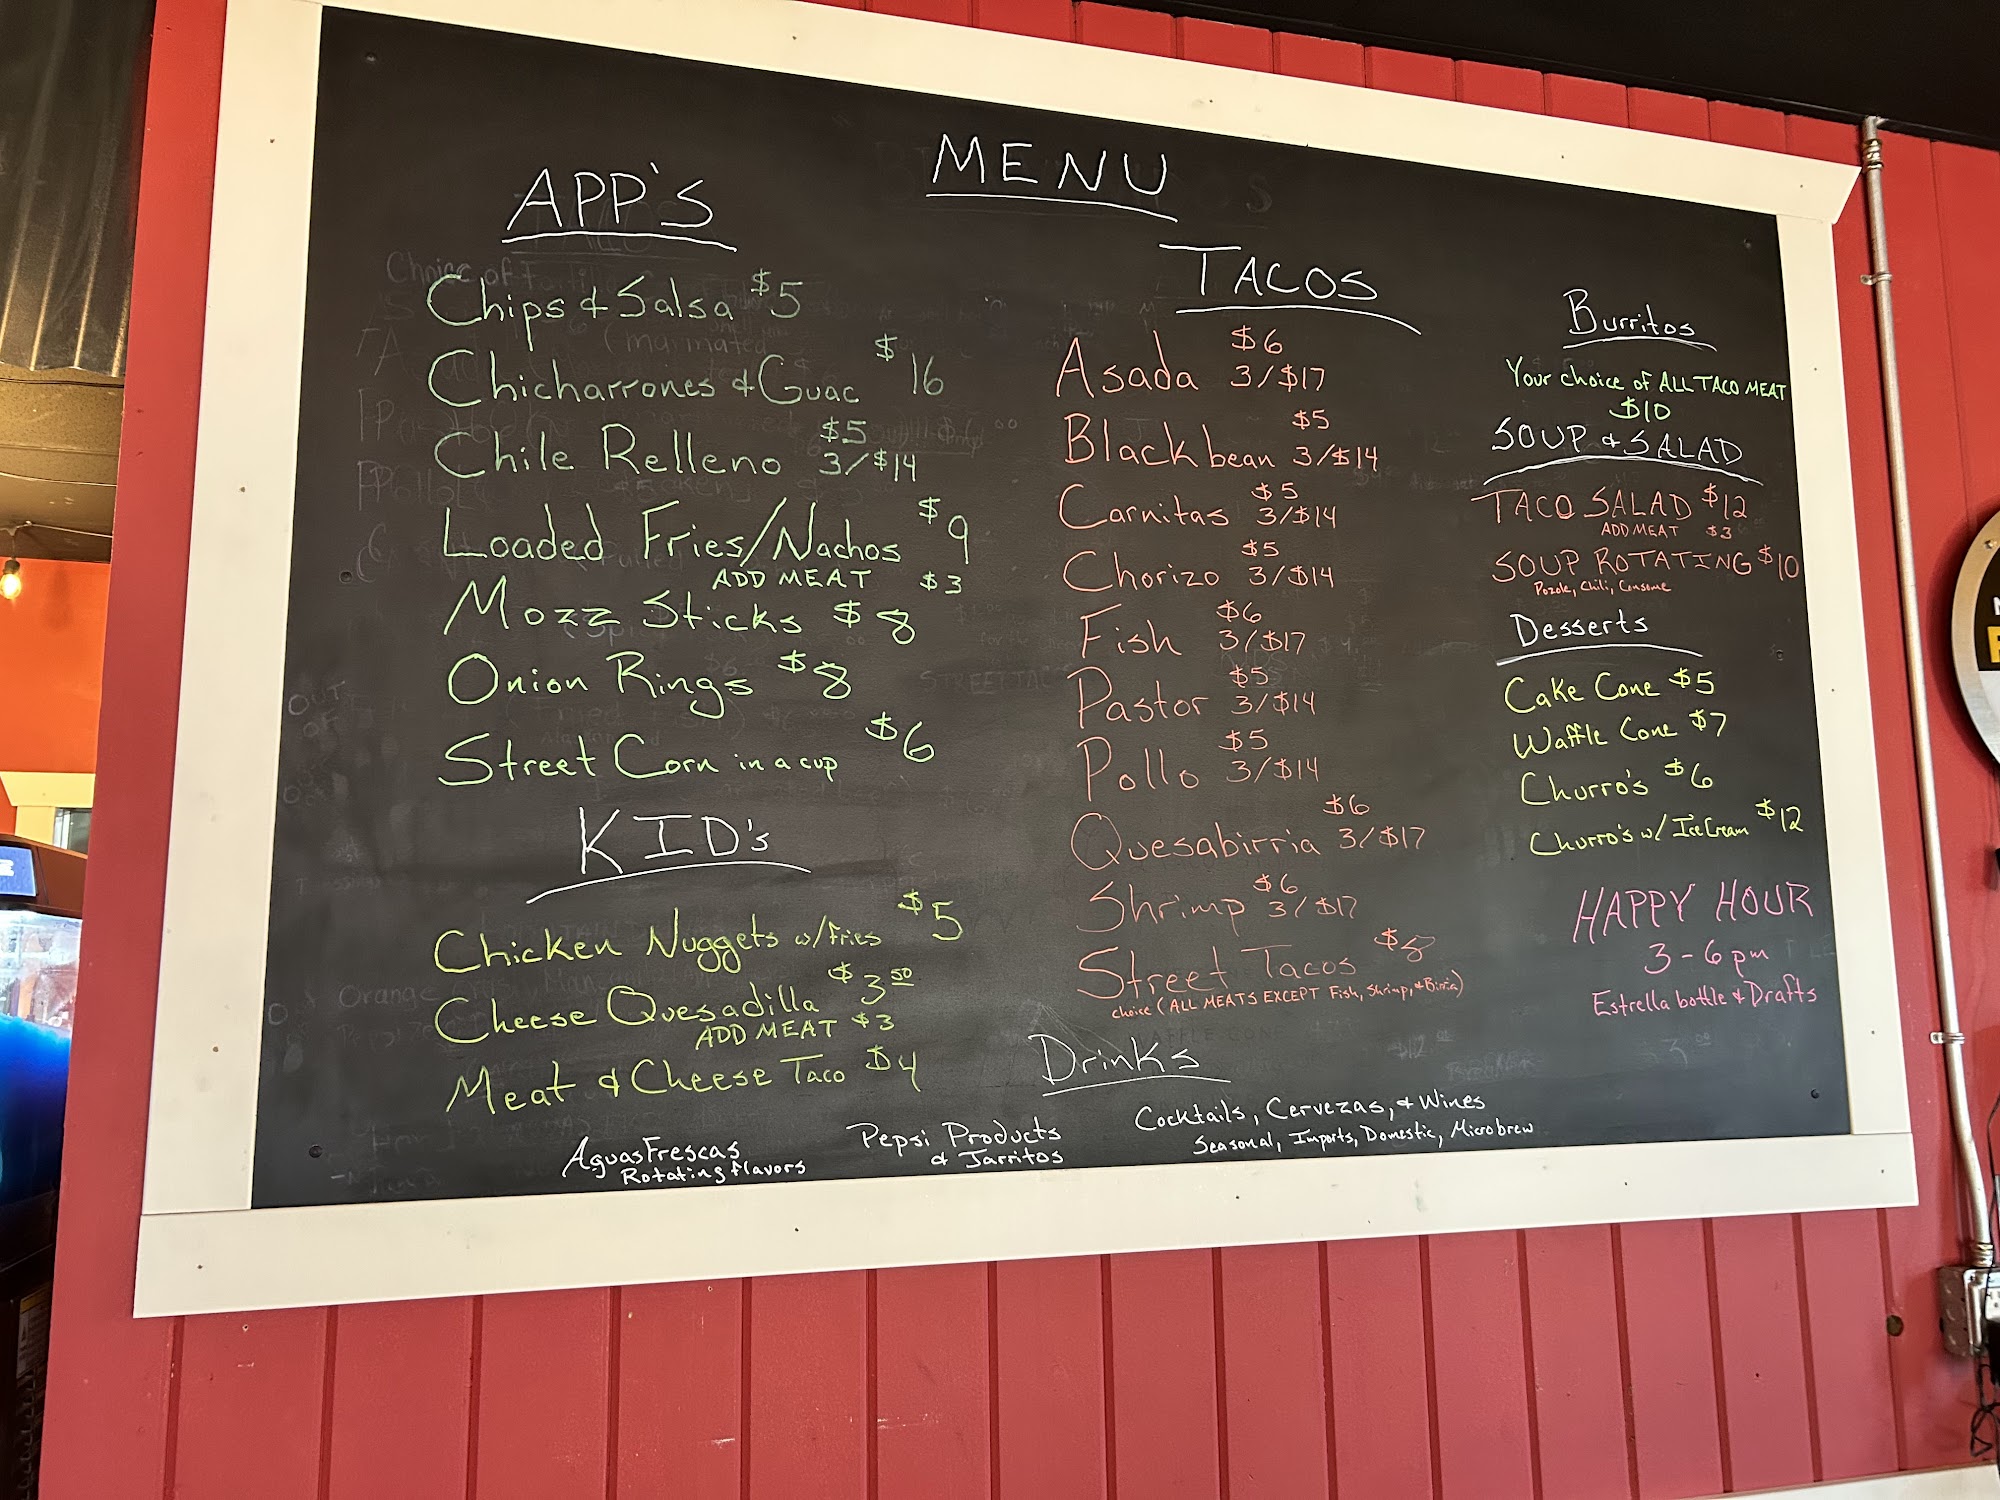 MENU
APP'S
Chips & Salsa $5
Chicharrones & Guac $16
Chile Relleno $5
3/$14
Loaded Fries/Nachos $9
ADD MEAT $3
Mozz Sticks $8
Onion Rings $8
Street Corn in a cup $6
KID's
Chicken Nuggets w/fries $5
Cheese Quesadilla $3.50
ADD MEAT $3
Meat & Cheese Taco $4
TACOS
Asada $6
3/$17
Blackbean $5
3/$14
Carnitas $5
3/$14
Chorizo $5
3/$14
Fish $6
3/$17
Pastor $5
3/$14
Pollo $5
3/$14
Quesabirria $6
3/$17
Shrimp $6
3/$17
Street Tacos $8
choice (ALL MEATS EXCEPT Fish, Shrimp, & Birria)
Burritos
Your choice of ALL TACO MEAT
$10
SOUP & SALAD
TACO SALAD $12
ADD MEAT $3
SOUP ROTATING $10
Pozole, Chili, Consome
Desserts
Cake Cone $5
Waffle Cone $7
Churro's $6
Churro's w/ Ice Cream $12
HAPPY HOUR
3-6pm
Estrella bottle & Drafts
Drinks
Aguas Frescas
Rotating flavors
Pepsi Products
& Jarritos
Cocktails, Cervezas, & Wines
Seasonal, Imports, Domestic, Microbrew